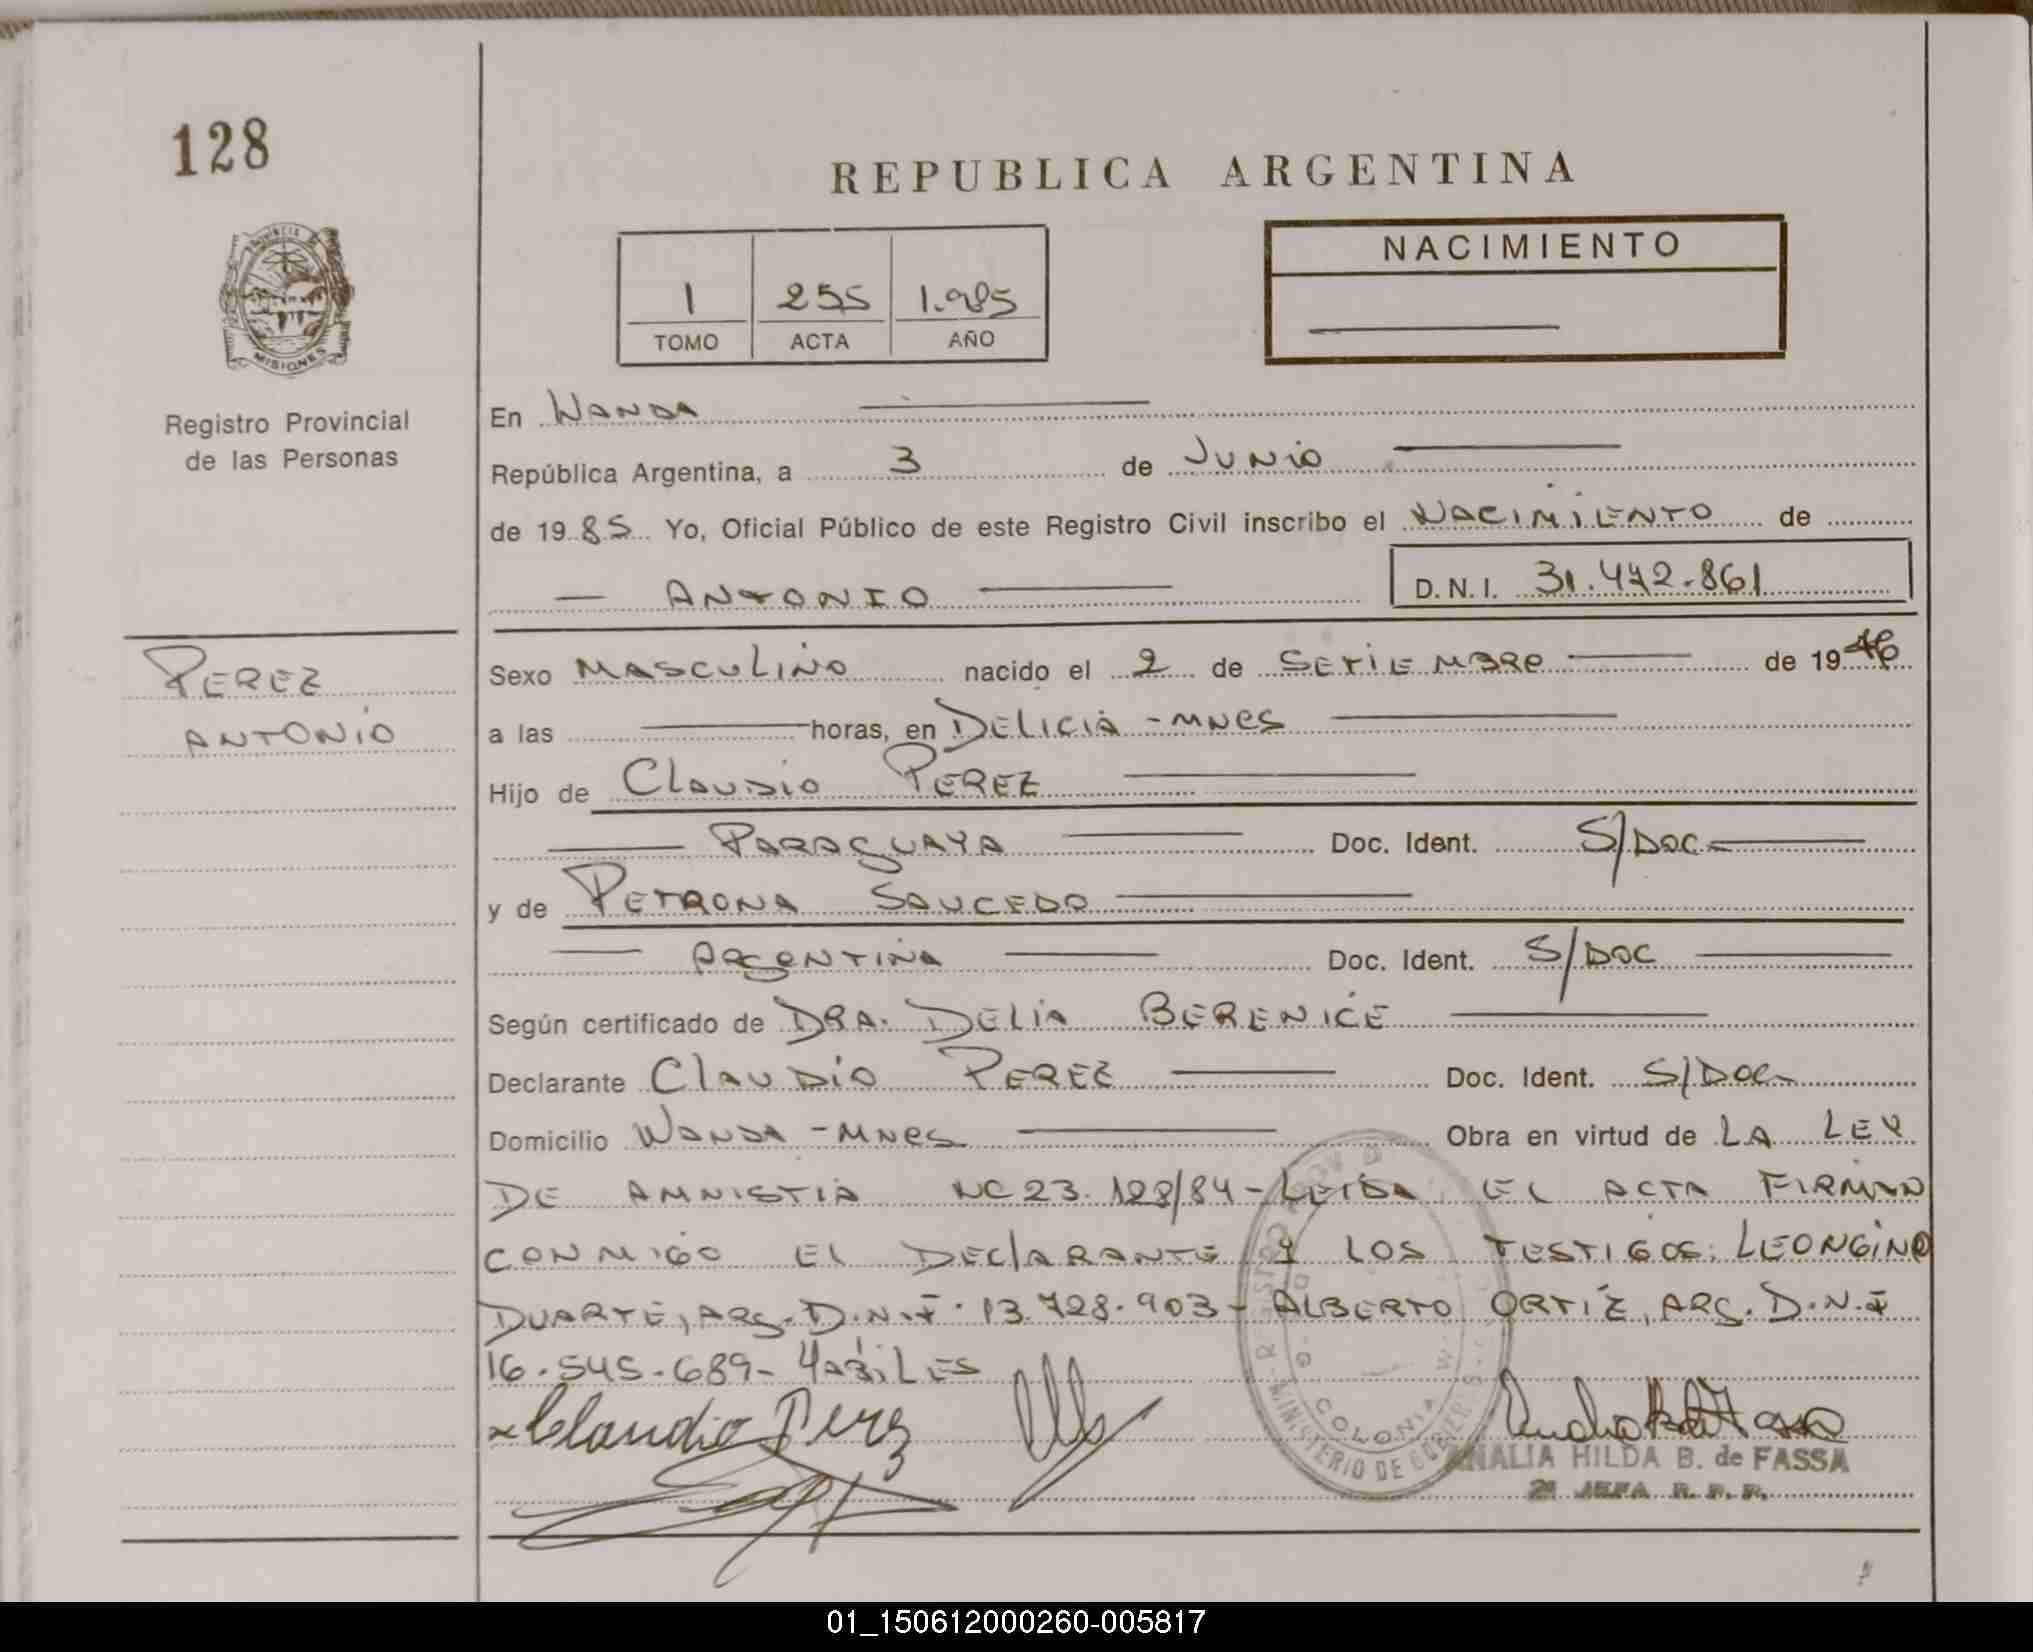 128
REPUBLICA ARGENTINA
PROVINCIA DE
MISIONES
Registro Provincial
de las Personas
1 255 1.985
TOMO ACTA AÑO
NACIMIENTO
En WANDA
República Argentina, a 3 de JUNIO
de 1985 Yo, Oficial Público de este Registro Civil inscribo el NACIMIENTO de
ANTONIO D.N.I. 31.472.861
PEREZ
ANTONIO
Sexo MASCULINO nacido el 2 de SETIEMBRE de 19
a las horas, en DELICIA - MNES
Hijo de CLAUDIO PEREZ
PARAGUAYA Doc. Ident. S/DOC
y de PETRONA SAUCEDO
ARGENTINA Doc. Ident. S/DOC
Según certificado de DRA. DELIA BERENICE
Declarante CLAUDIO PEREZ Doc. Ident. S/DOC
Domicilio WANDA - MNES Obra en virtud de LA LEY
DE AMNISTIA NC 23.128/84 - LEIDA EL ACTA FIRMAN
CONMIGO EL DECLARANTE Y LOS TESTIGOS: LEONGINO
DUARTE, ARG. D.N.I. 13.728.903 - ALBERTO ORTIZ, ARG. D.N.I
16.545.689 - HABILES
Claudio Perez
COLONIA W
MINISTERIO DE
ANALIA HILDA B. de FASSA
2ª JEFA R. P. P.
01_150612000260-005817